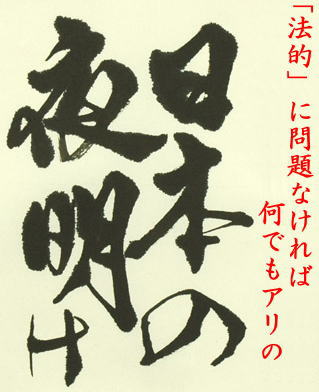 「法的」に問題なければ
何でもアリの
日本の
夜明け